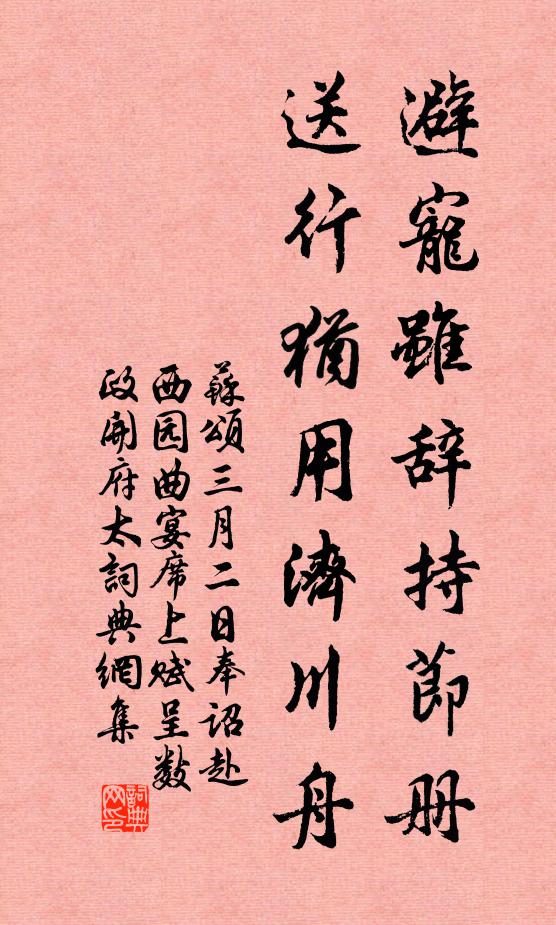 避寵雖辞持節册
送行猶用濟川舟
蘇頌三月二日奉诏赴
西园曲宴席上赋呈数
政開府太詞典網集
詞典网印